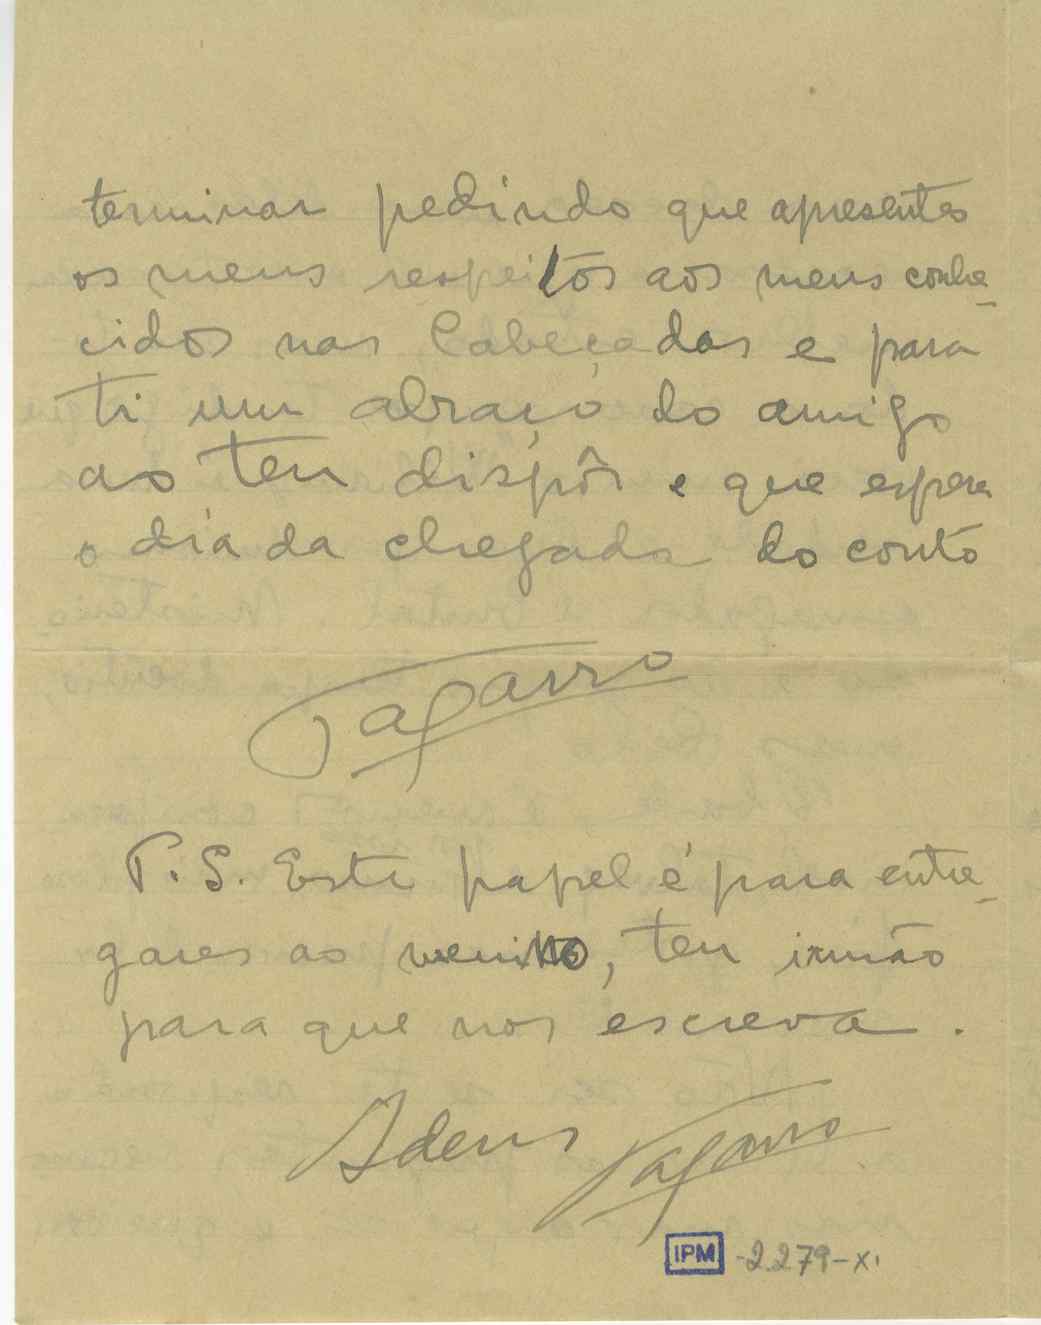 terminar pedindo que apresentes
os meus respeitos aos meus conhe-
cidos nas Cabeçadas e para
ti um abraço do amigo
ao teu dispôr e que espera
o dia da chegada do conto
Tagarro
P.S. Este papel é para entre-
gares ao menino, teu irmão
para que nos escreva.
Adeus Tagarro
IPM -2.279-XI